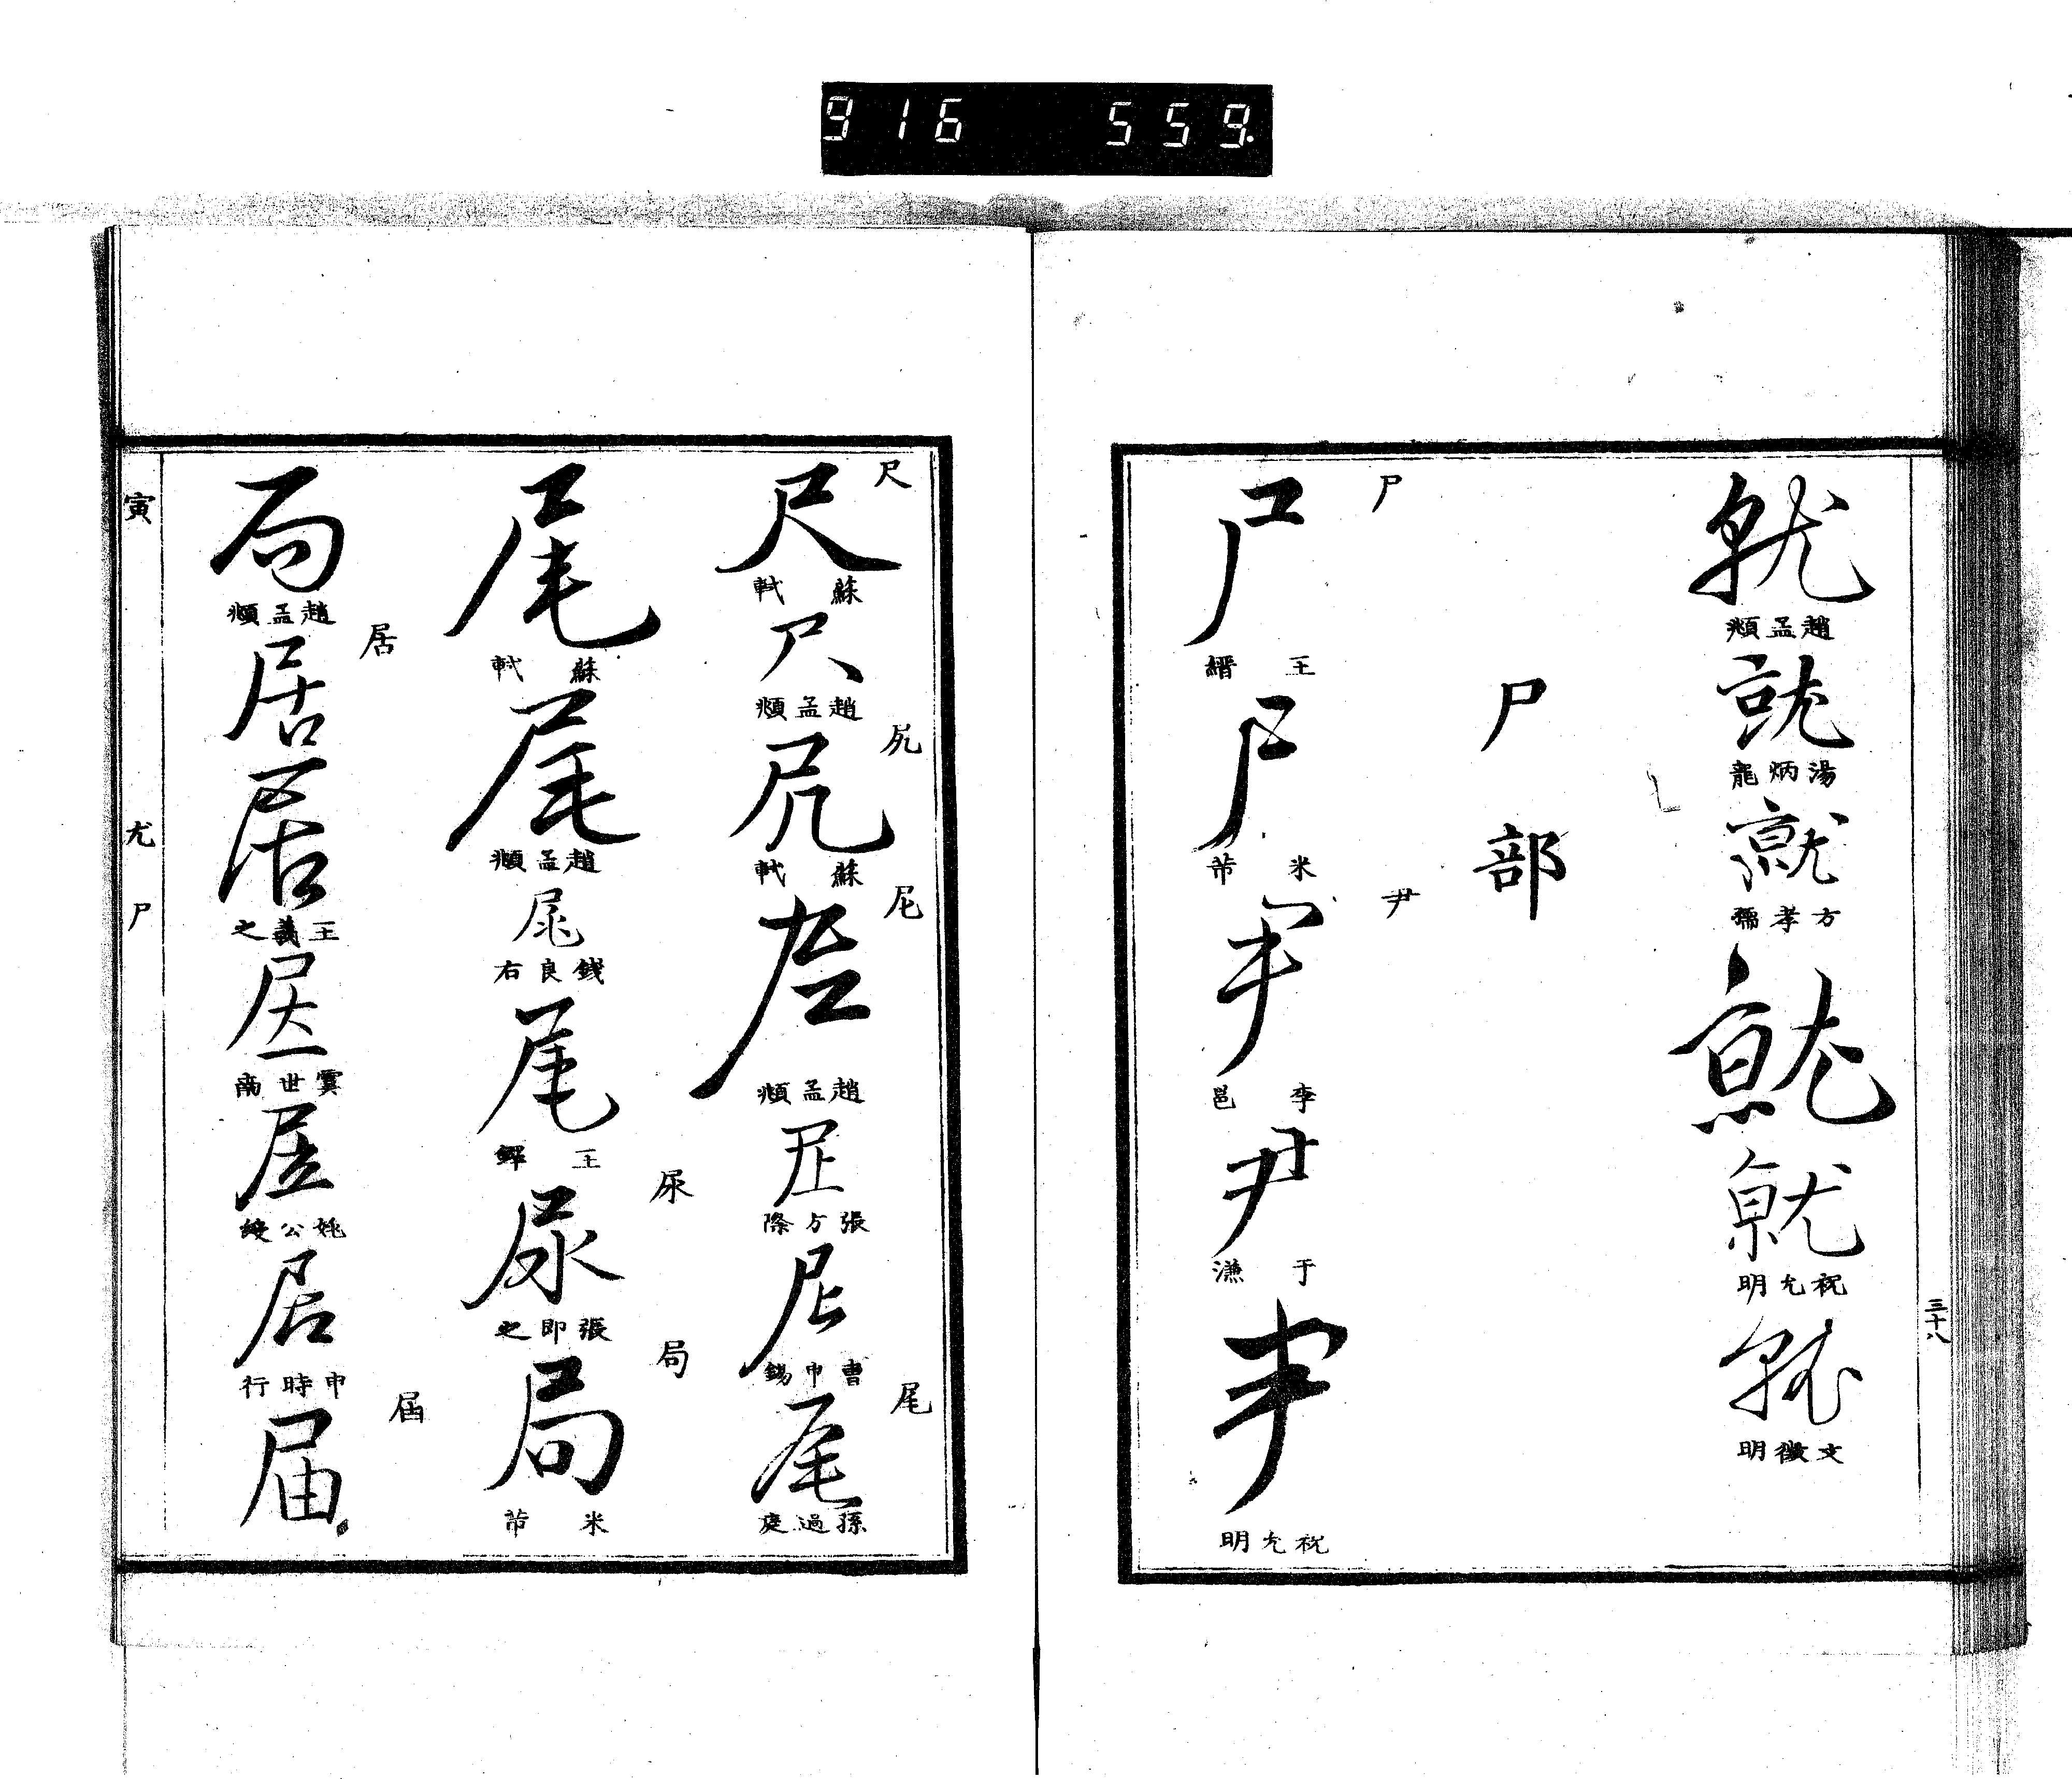 916 559.
就
趙孟頫
就
湯炳龍
就
方孝孺
就
就
祝允明
就
文徵明
三十八
尸部
尸
尸
王縉
尸
米芾
尹
尹
李邕
尹
于濂
尹
祝允明
尺
尺
蘇軾
尺
趙孟頫
尻
尻
蘇軾
尼
尼
趙孟頫
尼
張方
尼
曹
尾
尾
孫過庭
尾
蘇軾
尾
趙孟頫
尾
錢良右
尾
王鐸
尿
尿
張即之
局
局
米芾
局
趙孟頫
居
居
居
王羲之
居
虞世南
居
姚公綬
居
申時行
屆
届
寅
尢
尸